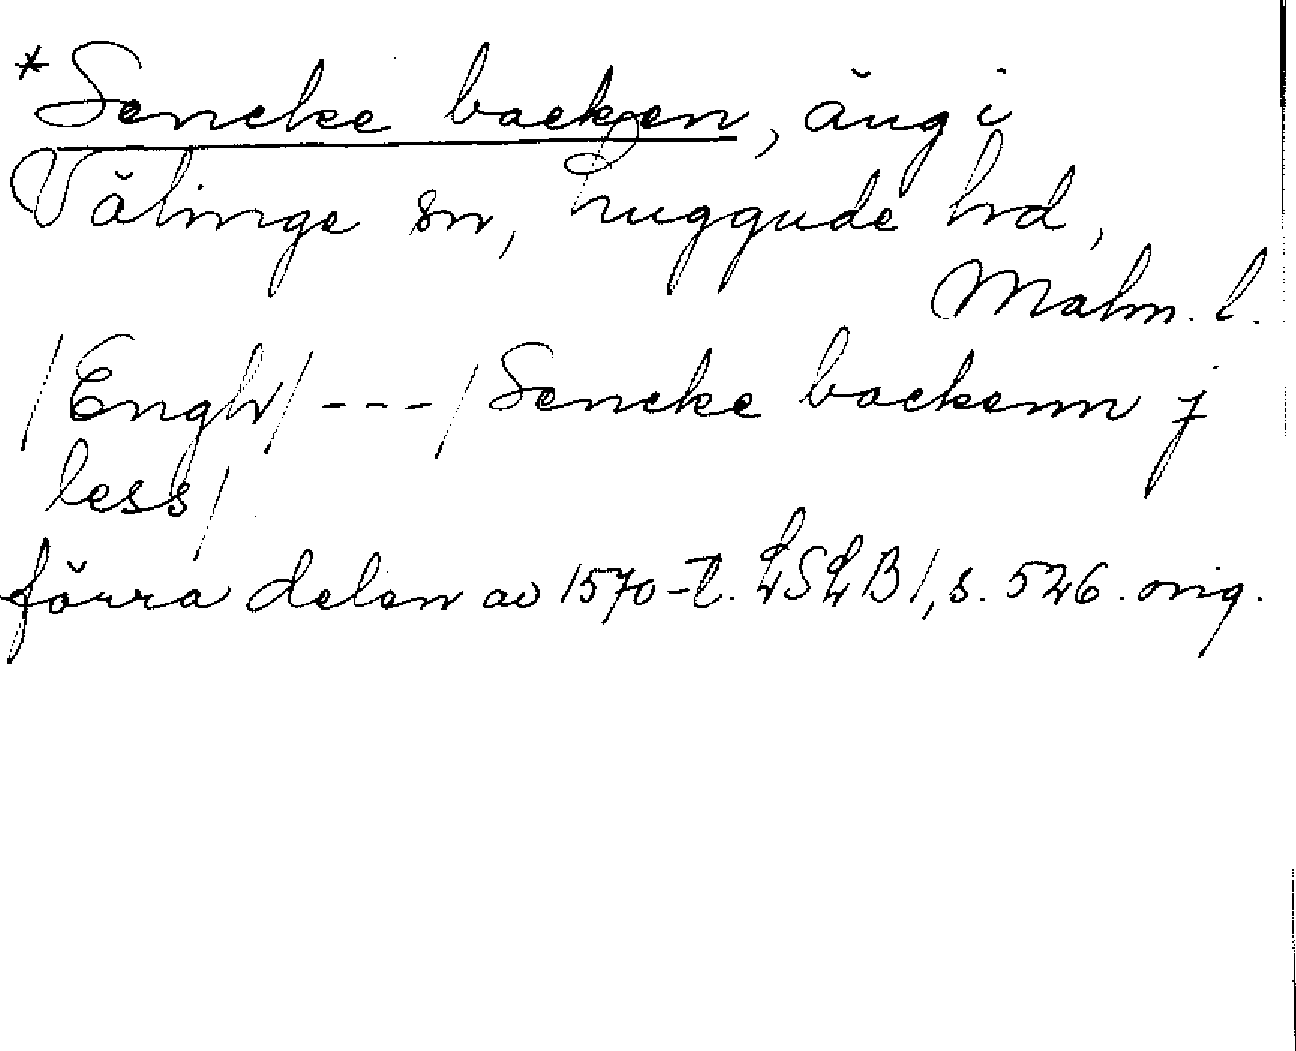 *Sencke backen, äng i
Välinge sn, Luggude hrd,
Malm. l.
/Engh/ --- / Sencke backenn j
less/
förra delen av 1570-t. LSLB 1, s. 526. orig.